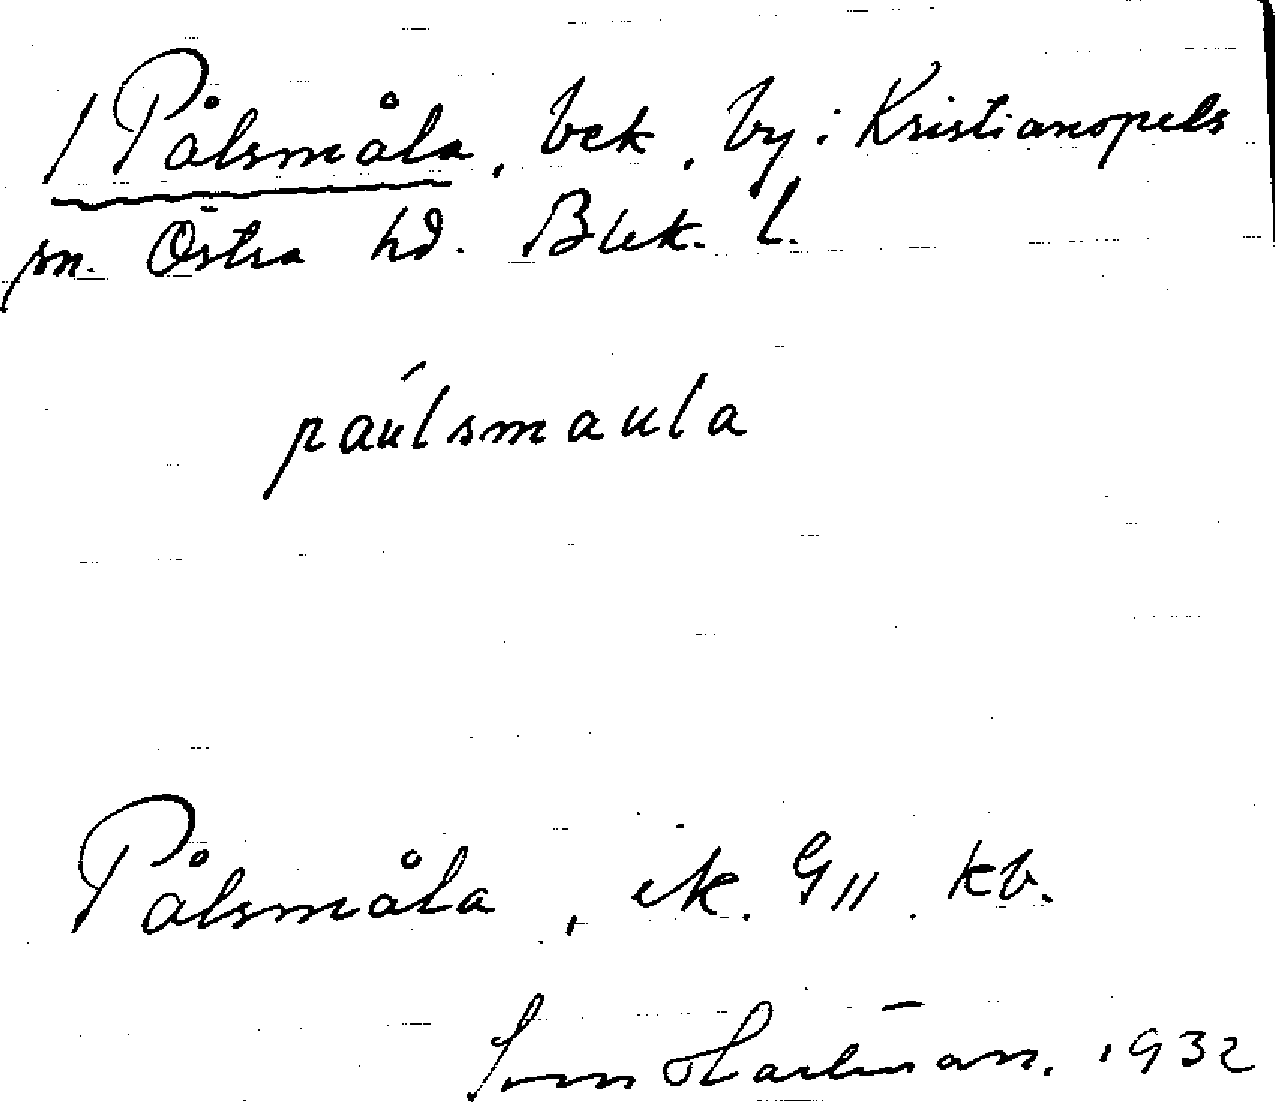 / Pålsmåla, bek. by i Kristianopels
sn. Östra hd. Blek. l.
páulsmaula
Pålsmåla, ek. G11. kb.
Sven Hartman. 1932